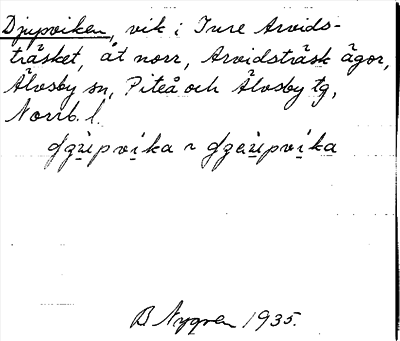 Djupviken, vik i Ture Arvids-
träsket, åt norr, Arvidsträsk ägor,
Älvsby sn, Piteå och Älvsby tg,
Norrb. l.
B Nygren 1935.